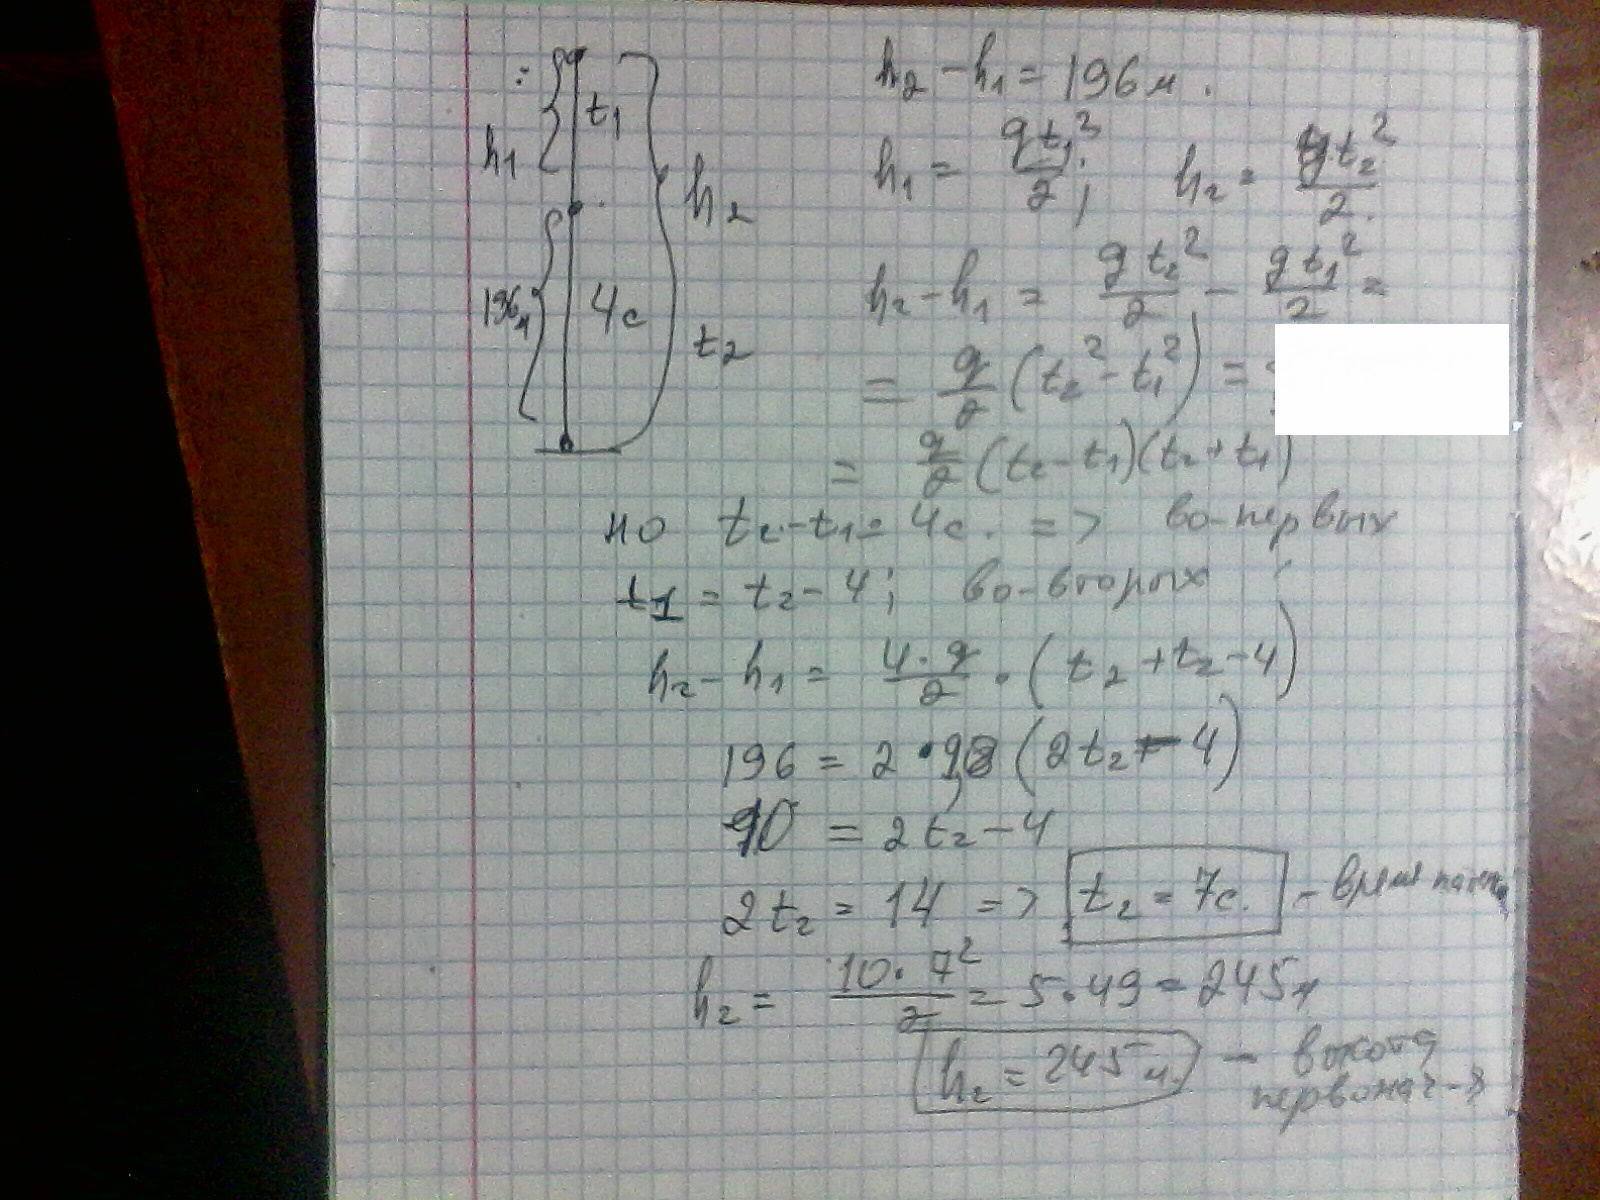 h₁ t₁ h₂
196м 4с t₂
h₂ - h₁ = 196 м.
h₁ = gt₁²/2; h₂ = gt₂²/2.
h₂ - h₁ = gt₂²/2 - gt₁²/2 =
= g/2 (t₂² - t₁²) =
= g/2 (t₂ - t₁)(t₂ + t₁)
но t₂ - t₁ = 4с. => во-первых
t₁ = t₂ - 4; во-вторых
h₂ - h₁ = 4·g/2 · (t₂ + t₂ - 4)
196 = 2 · 9,8 (2t₂ - 4)
10 = 2t₂ - 4
2t₂ = 14 => t₂ = 7с. - время
h₂ = 10·7²/2 = 5·49 = 245м
h₂ = 245м. - высота
первонач-я